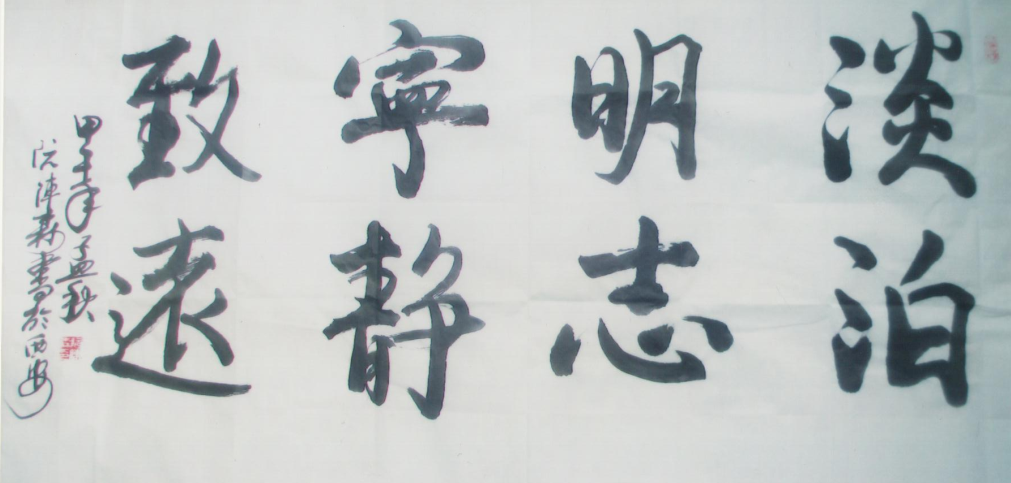 淡泊
明志
寧靜
致遠
甲午年孟秋
陣森書於西安